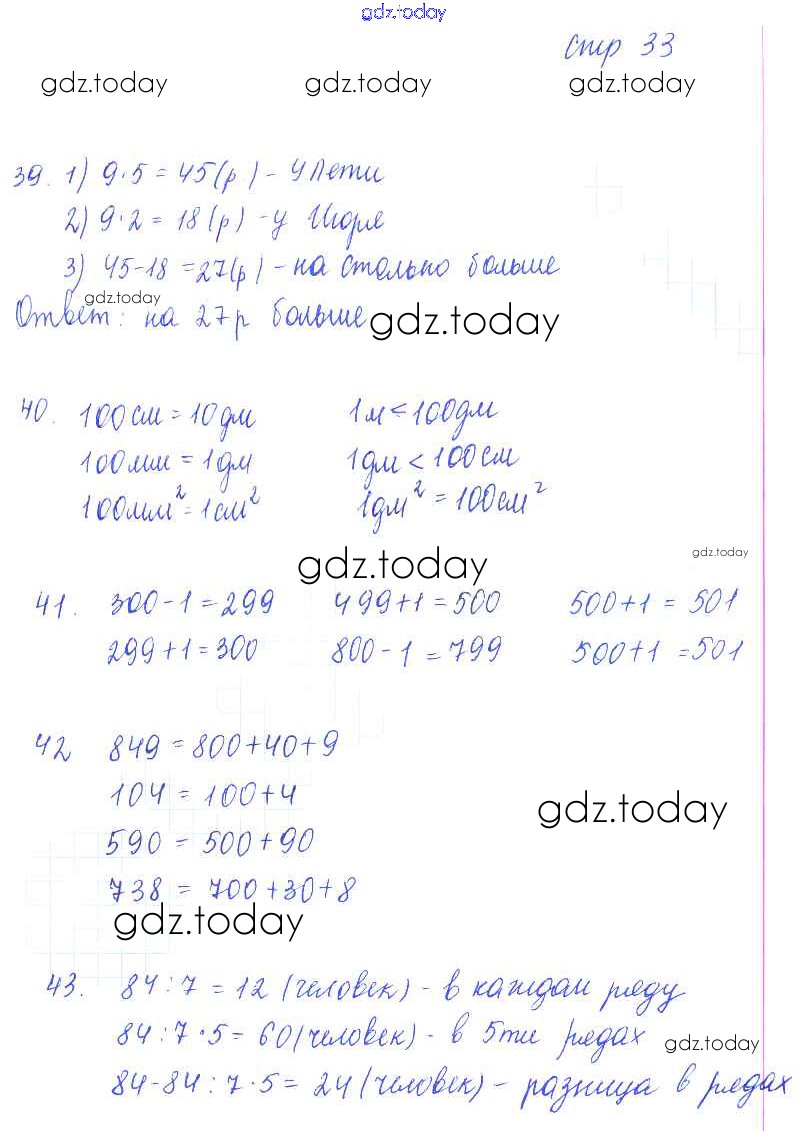 gdz.today
стр 33
gdz.today gdz.today gdz.today
39. 1) 9·5 = 45(р) - у Пети
2) 9·2 = 18(р) - у Игоря
3) 45-18 = 27(р) - на столько больше
gdz.today
Ответ: на 27р больше
gdz.today
40. 100см = 10дм 1м < 100дм
100мм = 1дм 1дм < 100см
100мм² = 1см² 1дм² = 100см²
gdz.today gdz.today
41. 300-1 = 299 499+1 = 500 500+1 = 501
299+1 = 300 800-1 = 799 500+1 = 501
42 849 = 800+40+9
104 = 100+4
gdz.today
590 = 500+90
738 = 700+30+8
gdz.today
43. 84:7 = 12 (человек) - в каждом ряду
84:7·5 = 60(человек) - в 5ти рядах
gdz.today
84-84:7·5 = 24(человек) - разница в рядах